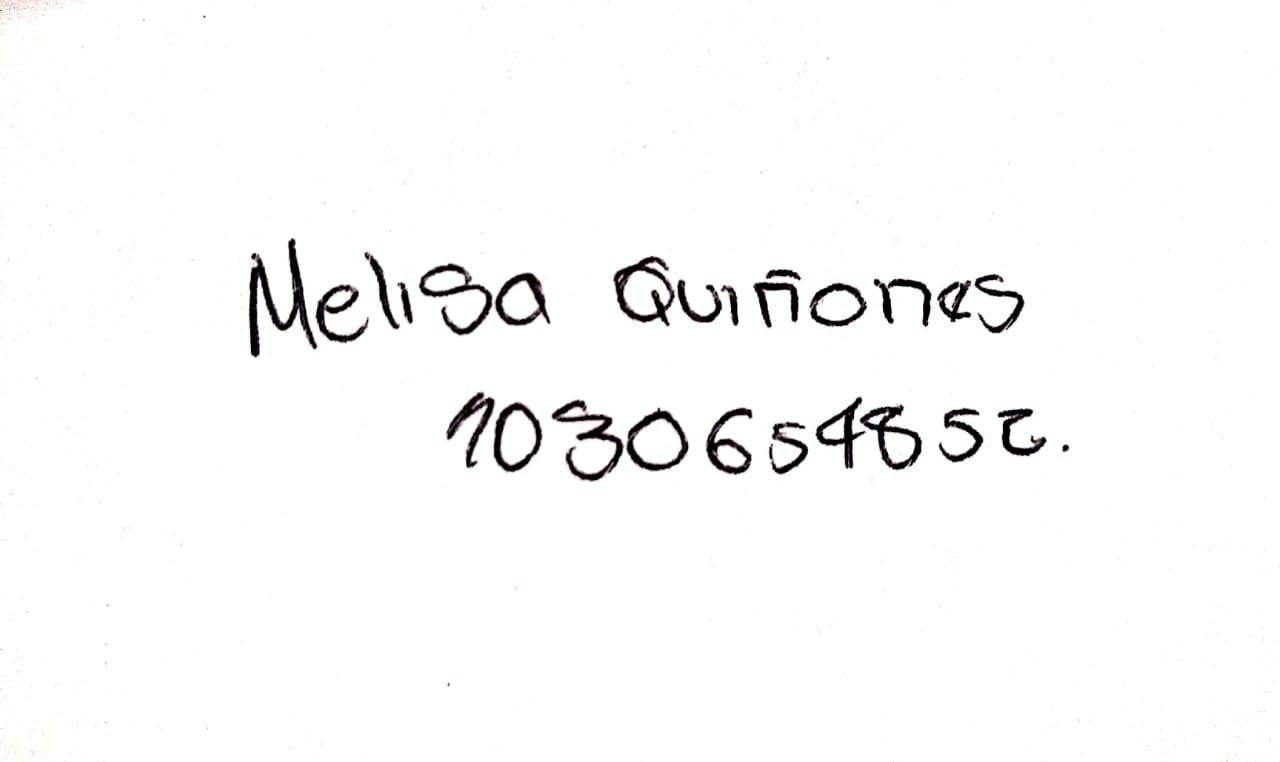 Melisa Quiñones
1030654852.